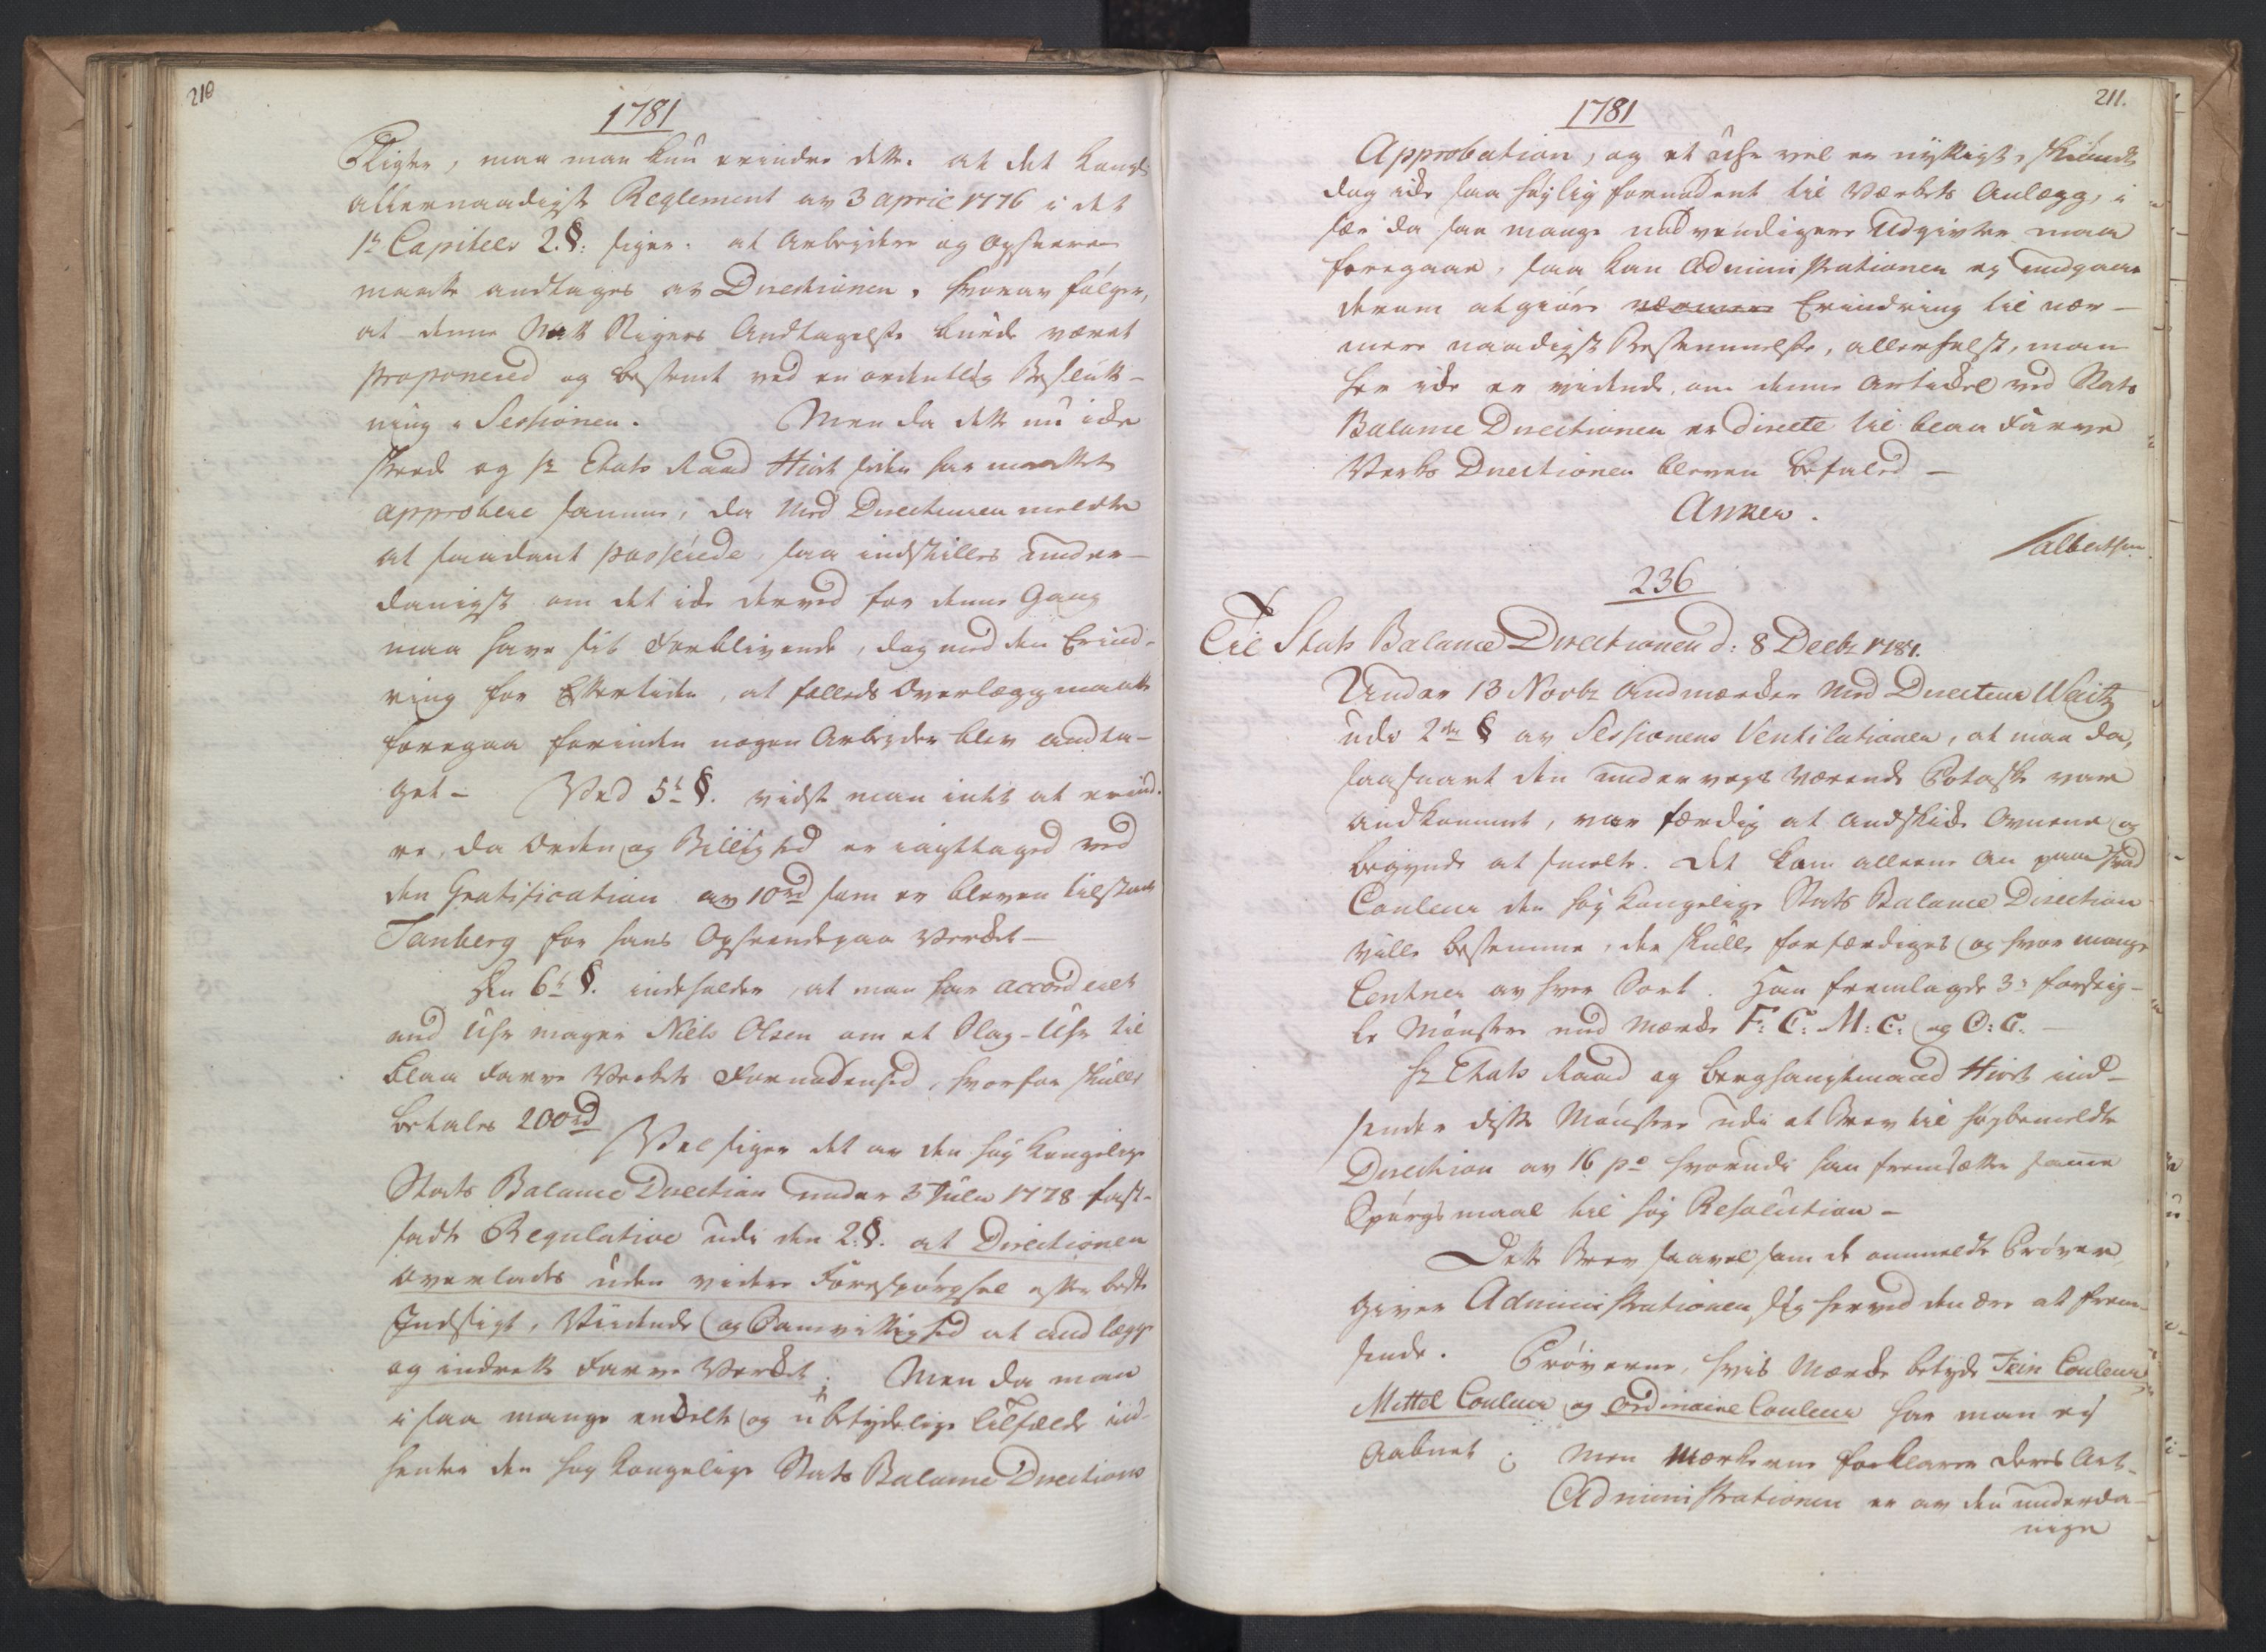 210
1781
Pligter, maa man kun erindre dette. at det Kongl:
allernaadigste Reglement av 3 April 1776 i det
1te Capitels 2. §: siger: at Arbeydere og Opseere
maatte andtages av Directionen, hvorav følger,
at denne Nat Rigers Andtagelse burde været
proponered og bestemt ved en ordentlig Beslut-
ning i Sessionen. Men da dette nu ikke
skeede og hr Etats Raad Hiort siden har maattet
approbere samme, da Med Directeuren meldte
at saadant passerede, saa indstilles under-
danigst om det icke derved for denne Gang
maa have sit Forblivende, dog med den Erind-
ring for Eftertiden, at fælleds Overlæg maatte
foregaa forinden nogen Arbeyder blev andta-
get - Ved 5te §. vidste man intet at erind-
re, da Orden og Billighed er iagttaged ved
den Gratification av 10rd som er bleven tilstaaet
Tanberg for hans Opseende paa Verket -
Den 6te §. indeholder, at man har accorderet
med Uhr mager Niels Olsen om et Slag-Uhr til
blaa Farve Verkets Fornødenhed, hvorfor skulle
betales 200rd
Vel siger det av den høy Kongelige
Stats Balance Direction under 3 Julii 1778 fast-
satte Regulativ udi den 2. §. at Directionen
overlades uden videre Forespørgsel efter beste
Indsigt, Vidende og Samvittighed at andlægge
og indrette Farve Verket; Men da man
i saa mange enkelte og ubetydelige Tilfælde ind-
henter den høy Kongelige Stats Balance Directions
211.
1781
Approbation, og et Uhr vel er nyttigt, skiøndt
dog icke saa høylig fornødent til Værkets Anlæg, i
sær da saa mange nødvendigere Udgivter maa
foregaae, saa kan Administrationen ey undgaae
derom at giøre nærmere Erindring til nær-
mere naadigst Bestemmelse, allerhelst, man
her icke er vidende, om denne Artickel ved Stats
Balance Directionen er directe til blaa Farve
Verks Directionen bleven befaled -
Anker.
/albertsen
236
Til Stats Balance Directionen d: 8 Decbr 1781.
Under 13 Novbr andmærker Med Directeur Waitz
udi 2den § av Sessionens Ventilationer, at man da,
saasnart den underveys værende Potaske var
andkommet, var færdig at andstikke Ovnene og
begynde at smelte. Det kom alleene an paa hvad
Couleur den høy Kongelige Stats Balance Direction
ville bestemme, der skulle forfærdiges og hvor mange
Centner av hver Sort. Han fremlagde 3de forskiel-
le Mønstre med Mærke F: C: M: C: og O: C. -
hr Etats Raad og Berghauptmand Hiort ind-
sender disse Mønstre udi et Brev til høybemeldte
Direction av 16 ps hvorudi han fremsætter samme
Spørgsmaal til høy Resolution -
Dette Brev saavelsom de ommeldte Prøver
giver Administrationen sig herved den ære at frem-
sende. Prøverne, hvis Mærke betyde Fein Couleur,
Mittel Couleur og Ordinaire Couleur har man ey
aabnet; Men Mærkerne forklarer deres Art.
Administrationen er av den underda-
nige